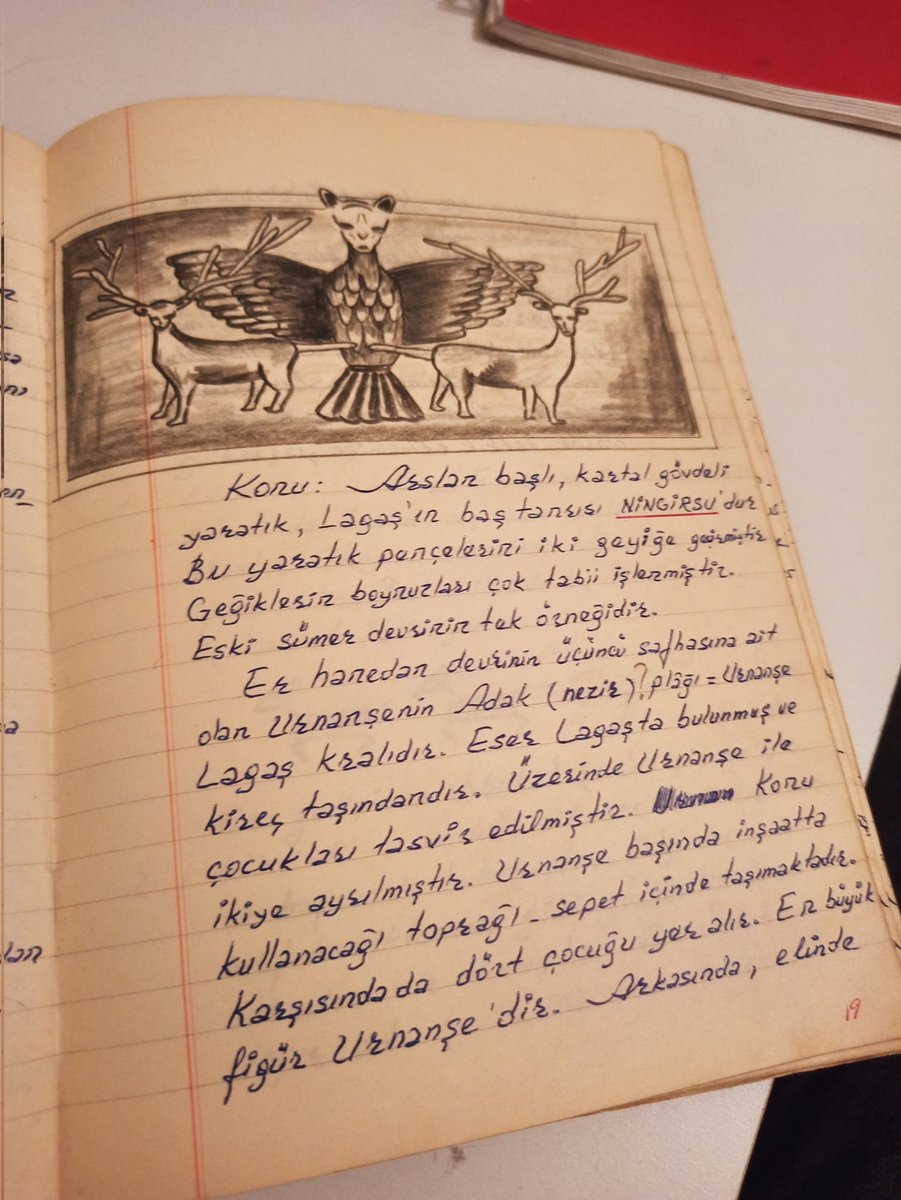 Konu: Arslan başlı, kartal gövdeli
yaratık, Lagaş'ın baş tanrısı NİNGİRSU'dur
Bu yaratık pençelerini iki geyiğe geçirmiştir
Geğiklerin boynuzları çok tabii işlenmiştir.
Eski Sümer devrinin tek örneğidir.
Er hanedan devrinin üçüncü safhasına ait
olan Urnanşenin Adak (nezir)? plâğı = Urnanşe
Lagaş kralıdır. Eser Lagaşta bulunmuş ve
kireç taşındandır. Üzerinde Urnanşe ile
çocukları tasvir edilmiştir. Konu
ikiye ayrılmıştır. Urnanşe başında inşaatta
kullanacağı toprağı - sepet içinde taşımaktadır.
Karşısında da dört çocuğu yer alır. En büyük
figür Urnanşe'dir. Arkasında, elinde
19